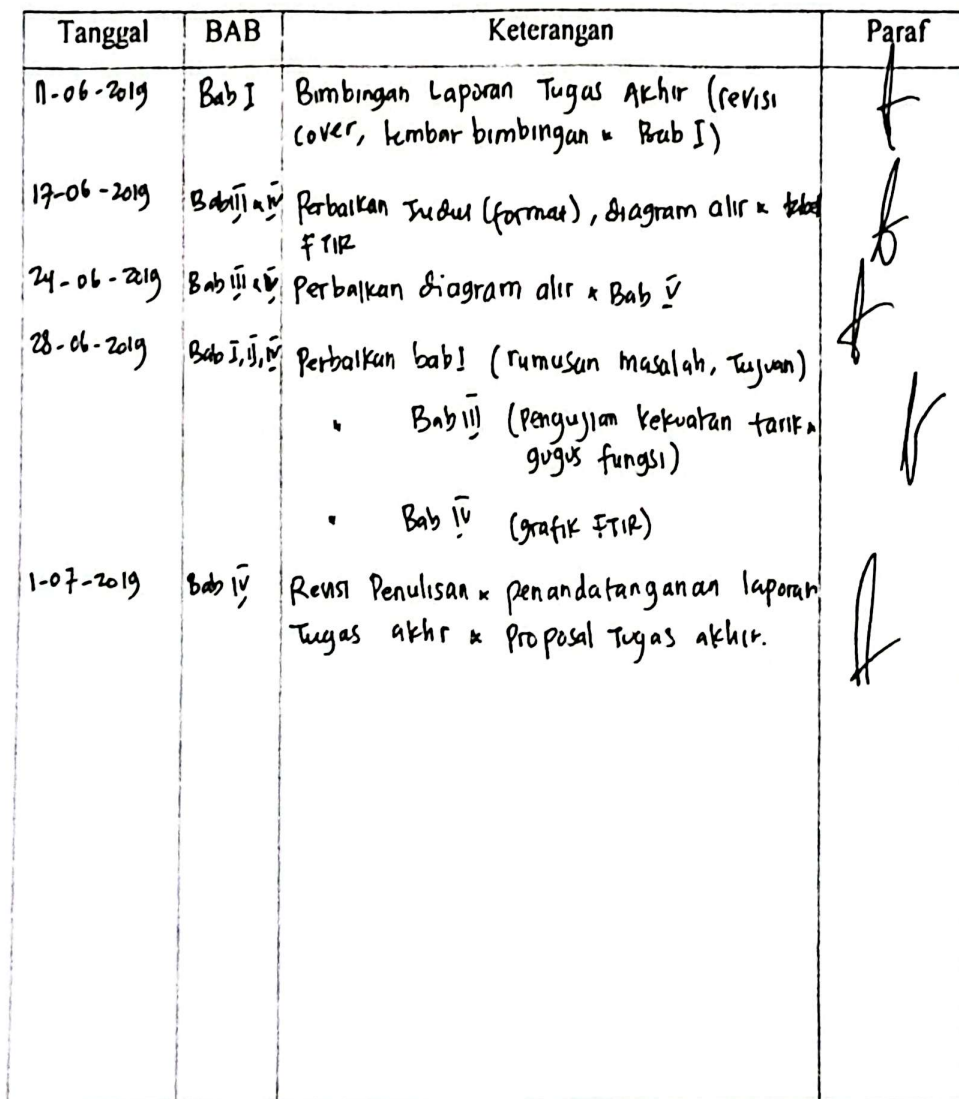 Tanggal BAB Keterangan Paraf
11-06-2019 Bab I Bimbingan Laporan Tugas Akhir (revisi
cover, lembar bimbingan & Bab I)
17-06-2019 Bab III & IV Perbaikan Judul (format), diagram alir & tabel
FTIR
24-06-2019 Bab III & V Perbaikan diagram alir & Bab V
28-06-2019 Bab I, II, IV Perbaikan bab I (rumusan masalah, Tujuan)
" Bab III (Pengujian kekuatan tarik &
gugus fungsi)
" Bab IV (grafik FTIR)
1-07-2019 Bab IV Revisi Penulisan & penandatanganan laporan
Tugas akhr & Proposal Tugas akhir.